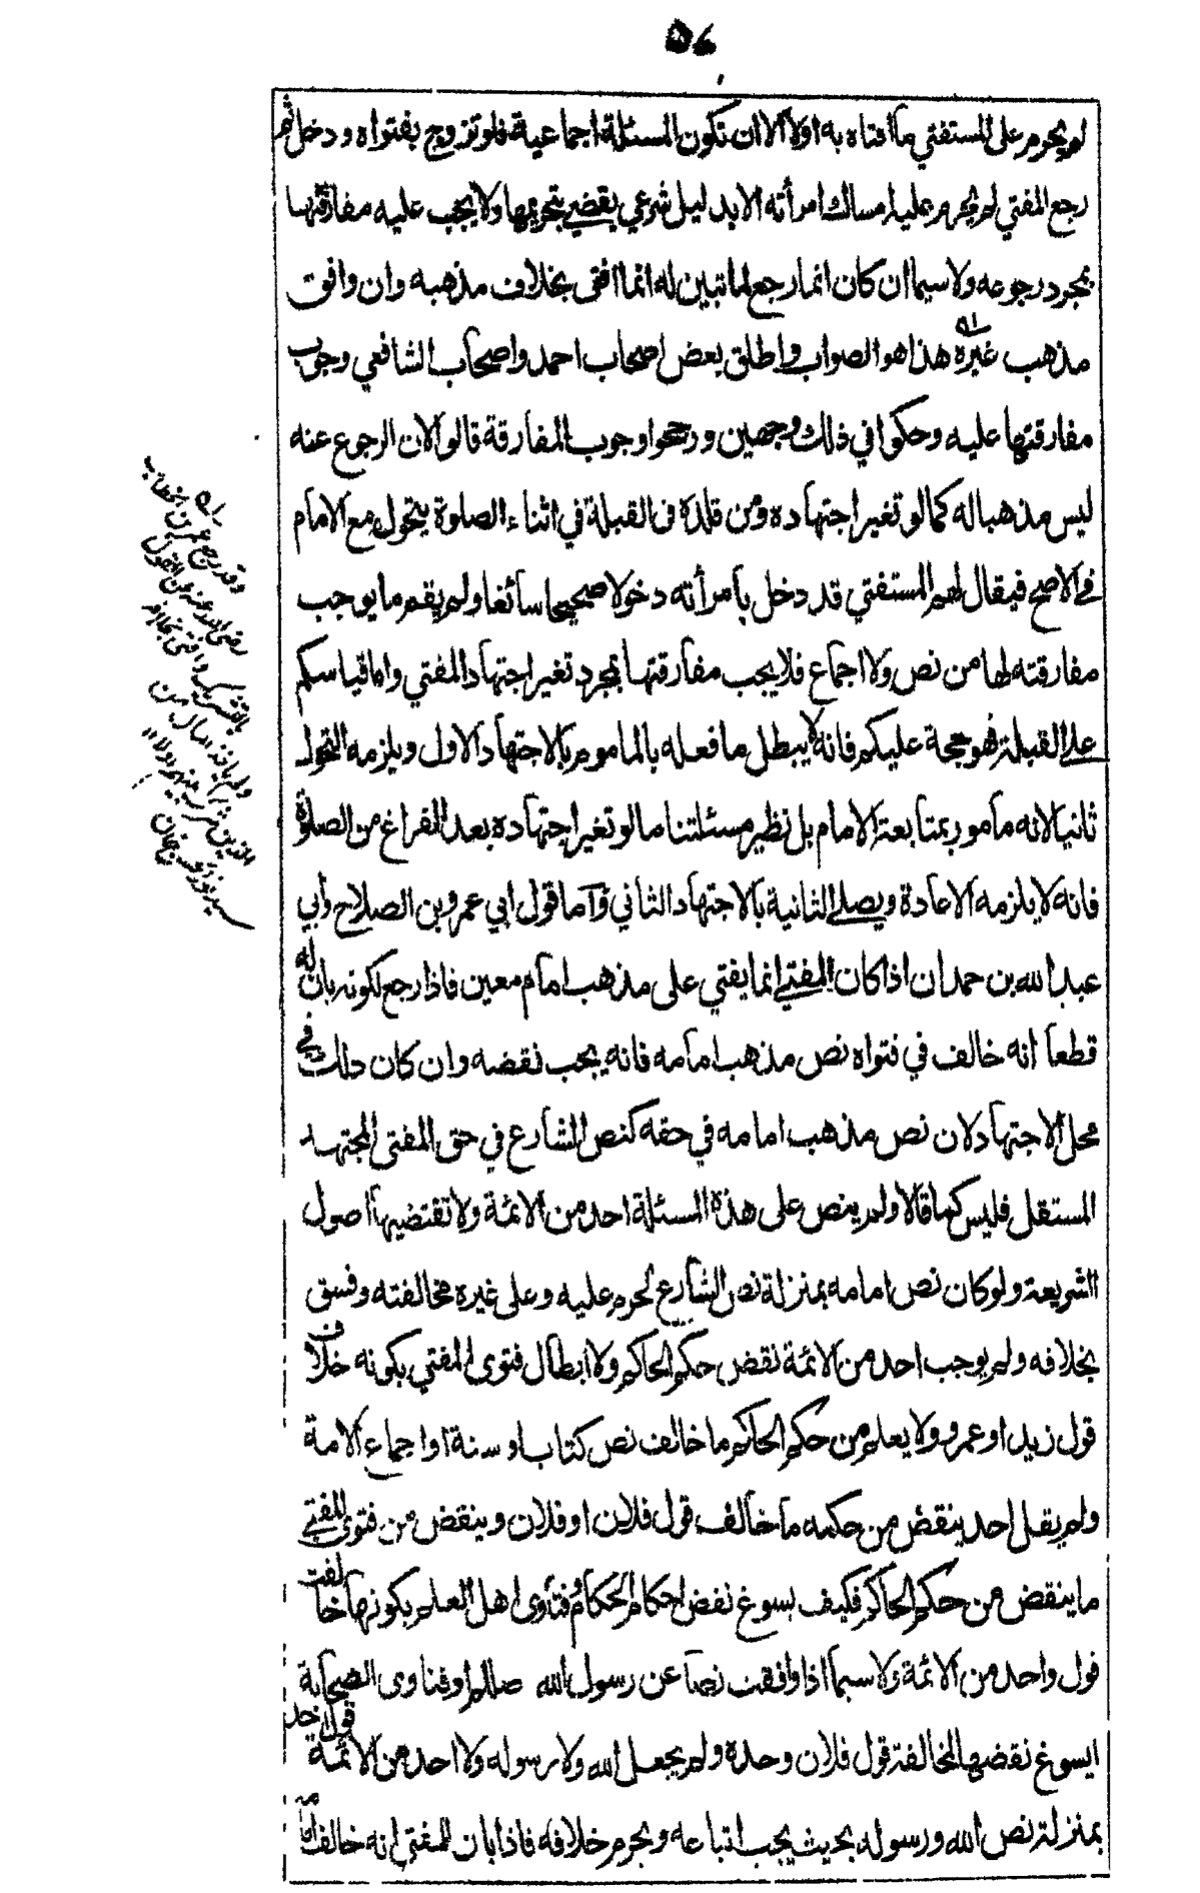 ٥٤
لم يحرم على المستفتي ما افتاه به اولا الا ان تكون المسئلة اجماعية فلو تزوج بفتواه ودخل ثم
رجع المفتي لم يحرم عليه امساك امرأته الا بدليل شرعي يقضي بتحريمها ولا يجب عليه مفارقتها
بمجرد رجوعه ولا سيما ان كان انما رجع لما تبين له انما افتى بخلاف مذهبه وان وافق
مذهب غيره هذا هو الصواب واطلق بعض اصحاب احمد واصحاب الشافعي وجوب
مفارقتها عليه وحكوا في ذلك وجهين ورجحوا وجوب المفارقة قالوا لان الرجوع عنه
ليس مذهبا له كما لو تغير اجتهاده ومن قلده في القبلة في اثناء الصلوة يتحول مع الامام
في الاصح فيقال لهم المستفتي قد دخل بامرأته دخولا صحيحا سائغا ولم يقم ما يوجب
مفارقته لها من نص ولا اجماع فلا يجب مفارقتها بمجرد تغير اجتهاد المفتي واما قياسكم
على القبلة فهو حجة عليكم فانه لا يبطل ما فعله بالماموم بالاجتهاد الاول ويلزمه التحول
ثانيا لانه مأمور بمتابعة الامام بل نظير مسئلتنا ما لو تغير اجتهاده بعد الفراغ من الصلوة
فانه لا يلزمه الاعادة ويصلي الثانية بالاجتهاد الثاني وأما قول ابي عمرو بن الصلاح وأبي
عبد الله بن حمدان اذا كان المفتي انما يفتي على مذهب امام معين فاذا رجع لكونه بان له
قطعا انه خالف في فتواه نص مذهب امامه فانه يجب نقضه وان كان ذلك في
محل الاجتهاد لان نص مذهب امامه في حقه كنص الشارع في حق المفتي المجتهد
المستقل فليس كما قالا ولم ينص على هذه المسئلة احد من الائمة ولا تقتضيها اصول
الشريعة ولو كان نص امامه بمنزلة نص الشارع لحرم عليه وعلى غيره مخالفته وفسق
بخلافه ولم يوجب احد من الائمة نقض حكم الحاكم ولا ابطال فتوى المفتي بكونه خلاف
قول زيد او عمرو ولا يعلم من حكم الحاكم ما خالف نص كتاب او سنة او اجماع الامة
ولم يقل احد ينقض من حكمه ما خالف قول فلان او فلان وينقض من فتوى المفتي
ما ينقض من حكم الحاكم فكيف يسوغ نقض احكام الحكام وفتاوى اهل العلم بكونها خالفت
قول واحد من الائمة ولا سيما اذا وافقت نصا عن رسول الله صللم او فتاوى الصحابة
ايسوغ نقضها لمخالفة قول فلان وحده ولم يجعل الله ولا رسوله ولا احد من الائمة قول احد
بمنزلة نص الله ورسوله بحيث يجب اتباعه ويحرم خلافه فاذا بان للمفتي انه خالف امامه
وقد رجع عمر بن الخطاب
رضي الله عنه عن القول